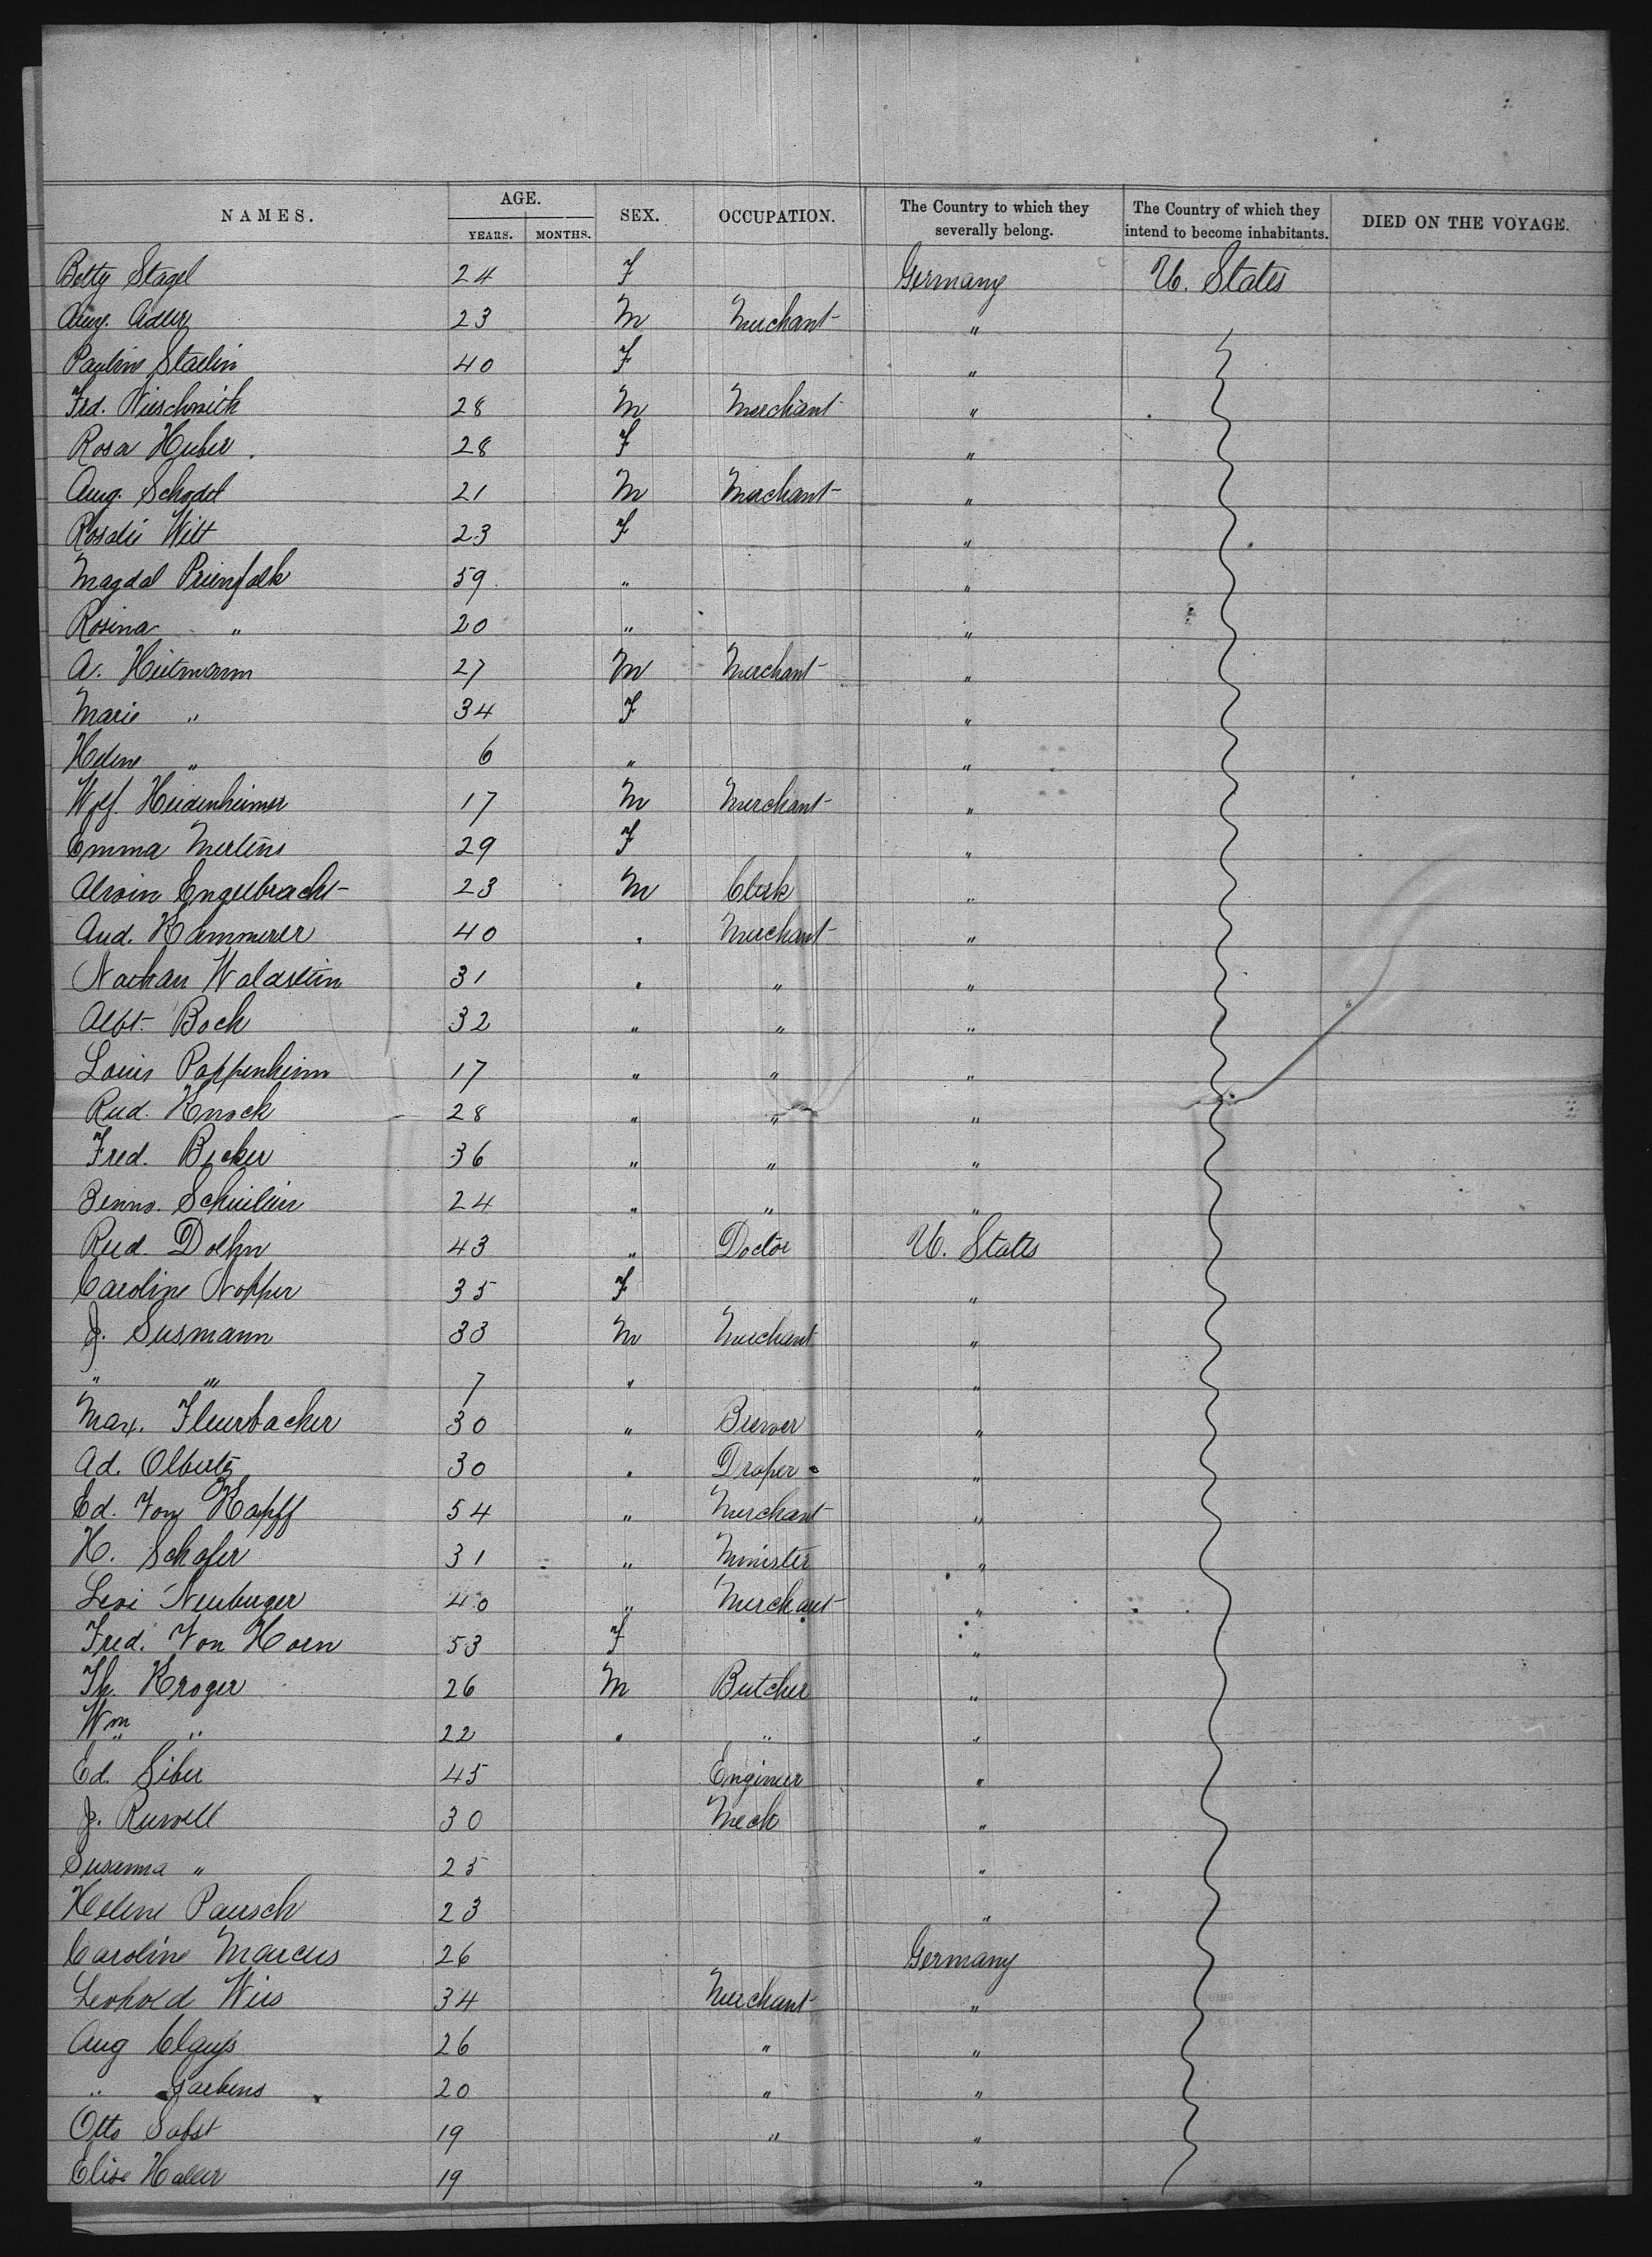 NAMES. AGE. SEX. OCCUPATION. The Country to which they severally belong. The Country of which they intend to become inhabitants. DIED ON THE VOYAGE.
YEARS. MONTHS.
Betty Stagel 24 F Germany U. States
Aug. Adler 23 M Merchant "
Pauline Staelin 40 F "
Frd. 28 M Merchant "
Rosa Huber 28 F "
Aug. Schodel 21 M Merchant "
Rosalie Witt 23 F "
Magdal 59 " "
Rosina " 20 " "
A. Heitmann 27 M Merchant "
Marie " 34 F "
Helene " 6 " "
Wolf. Heidenheimer 17 M Merchant "
Emma Mertens 29 F "
Alwin Engelbracht 23 M Clerk "
Aud. Kammerer 40 " Merchant "
Nathan Waldstein 31 " " "
Albt. Bach 32 " " "
Louis Pappenheim 17 " " "
Rud. Knock 28 " " "
Fred. Becker 36 " " "
Benno. Schulein 24 " " "
Rud. Doehn 43 " Doctor U. States
Caroline Nopper 35 F "
J. Susmann 33 M Merchant "
" " 7 " "
Max. Fleurbacher 30 " Brewer "
Ad. Olbertz 30 " Draper "
Ed. Von Kapff 54 " Merchant "
H. Schafer 31 " Minister "
Levi Neuburger 40 " Merchant "
Fred. Von Horn 53 F "
Th. Kroger 26 M Butcher "
Wm " 22 " " "
Ed. Siber 45 Engineer "
J. 30 Mech "
Susanna " 25 "
Helene Pausch 23 "
Caroline Marcus 26 Germany
Leopold Wies 34 Merchant "
Aug Clauss 26 " "
" 20 " "
Otto 19 " "
Elise Haller 19 "